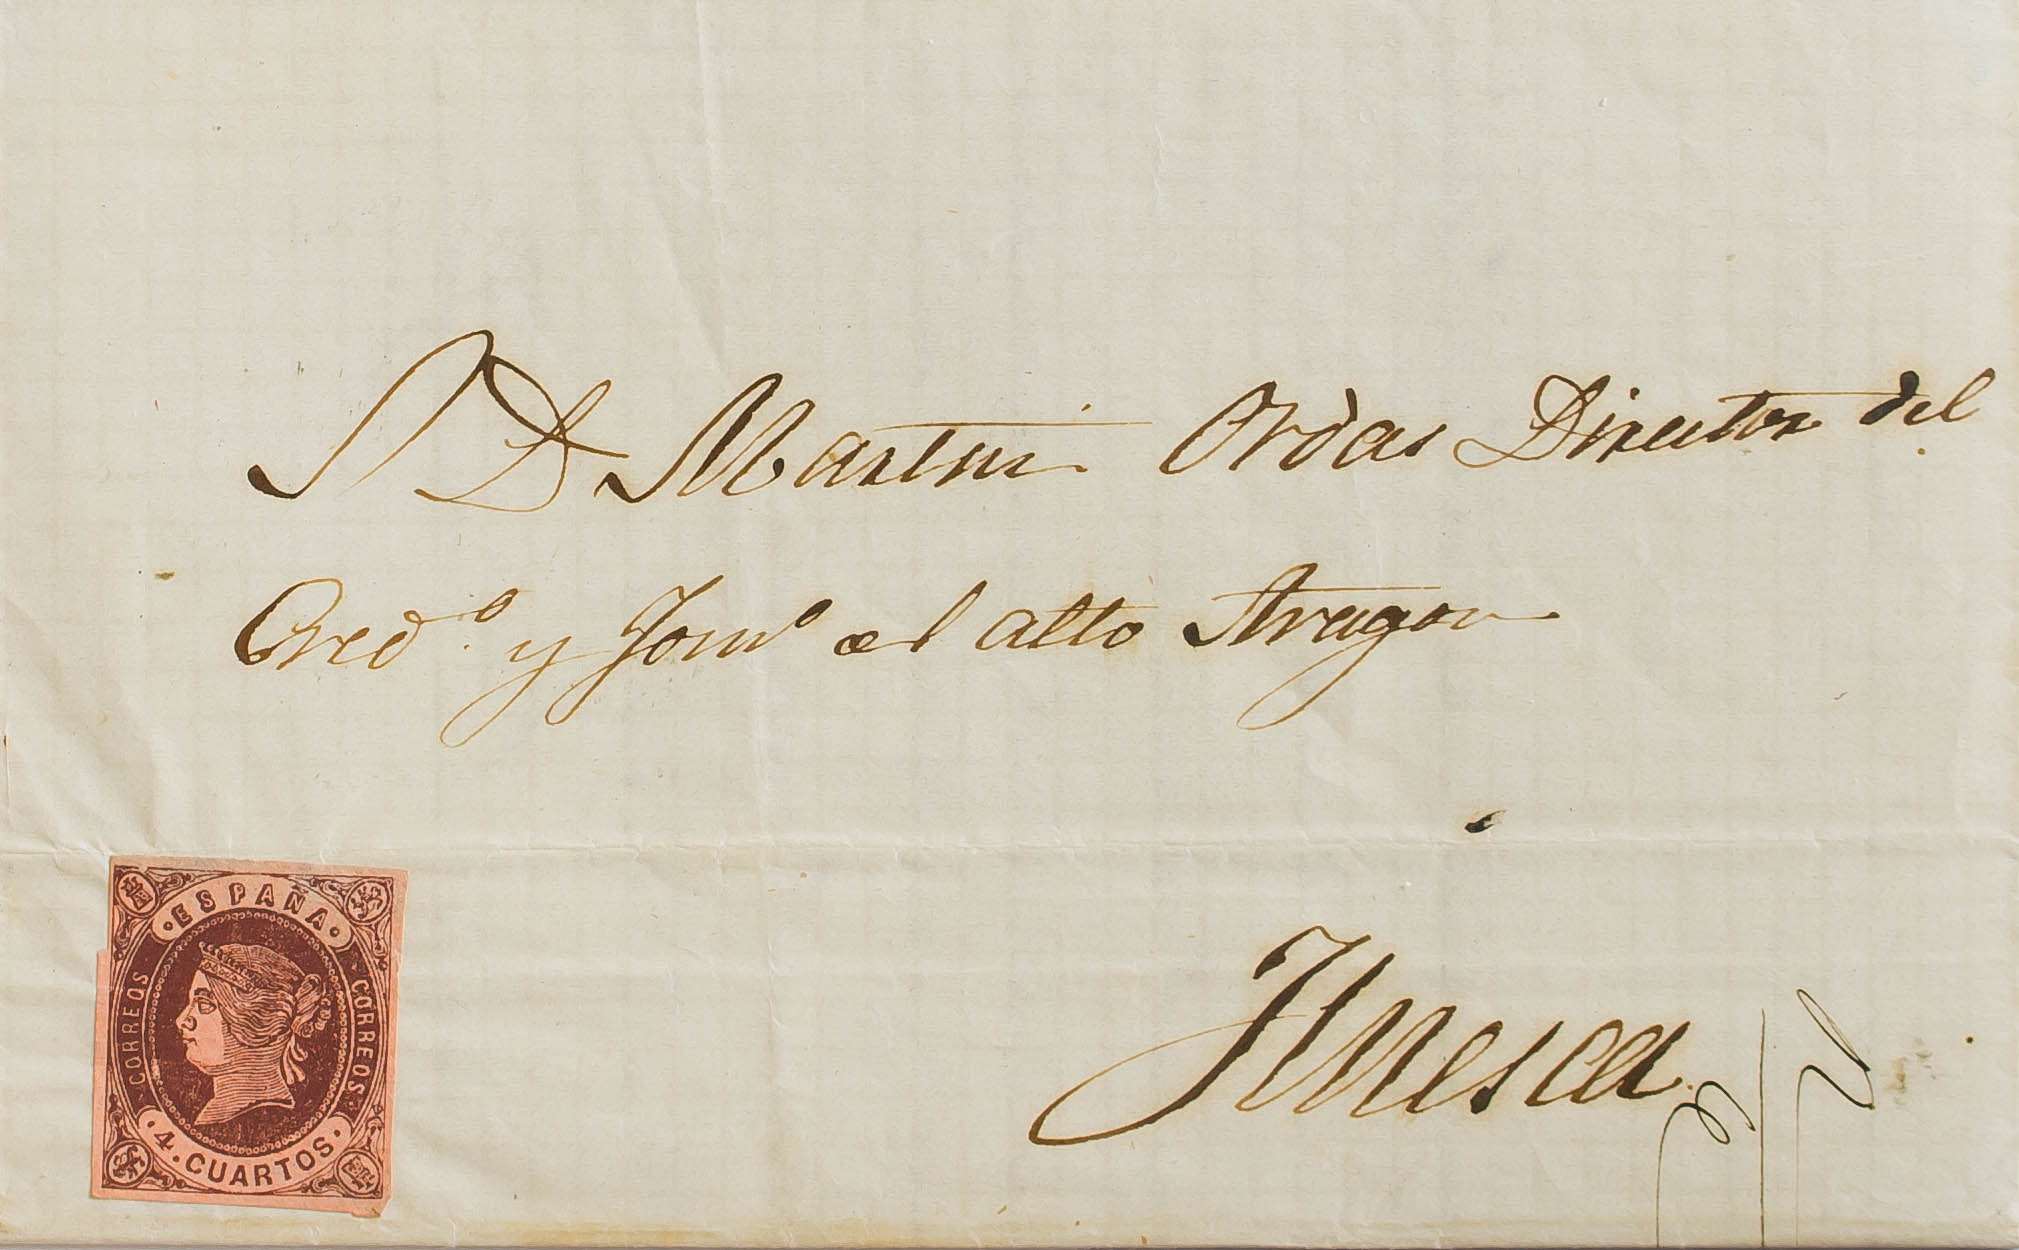 S D Martin Ordas Director del
Cred.º y Fomº el alto Aragon
Huesca
ESPAÑA
CORREOS
CORREOS
4. CUARTOS